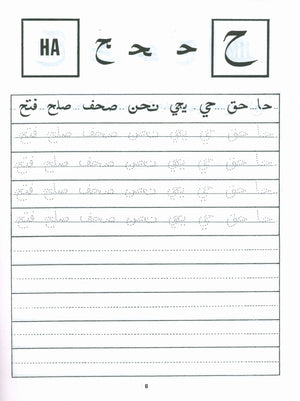 ح حـ ـحـ ـح HA
حا حق حي يحي نحن صحف صلح فتح
حا حق حي يحي نحن صحف صلح فتح
حا حق حي يحي نحن صحف صلح فتح
حا حق حي يحي نحن صحف صلح فتح
حا حق حي يحي نحن صحف صلح فتح